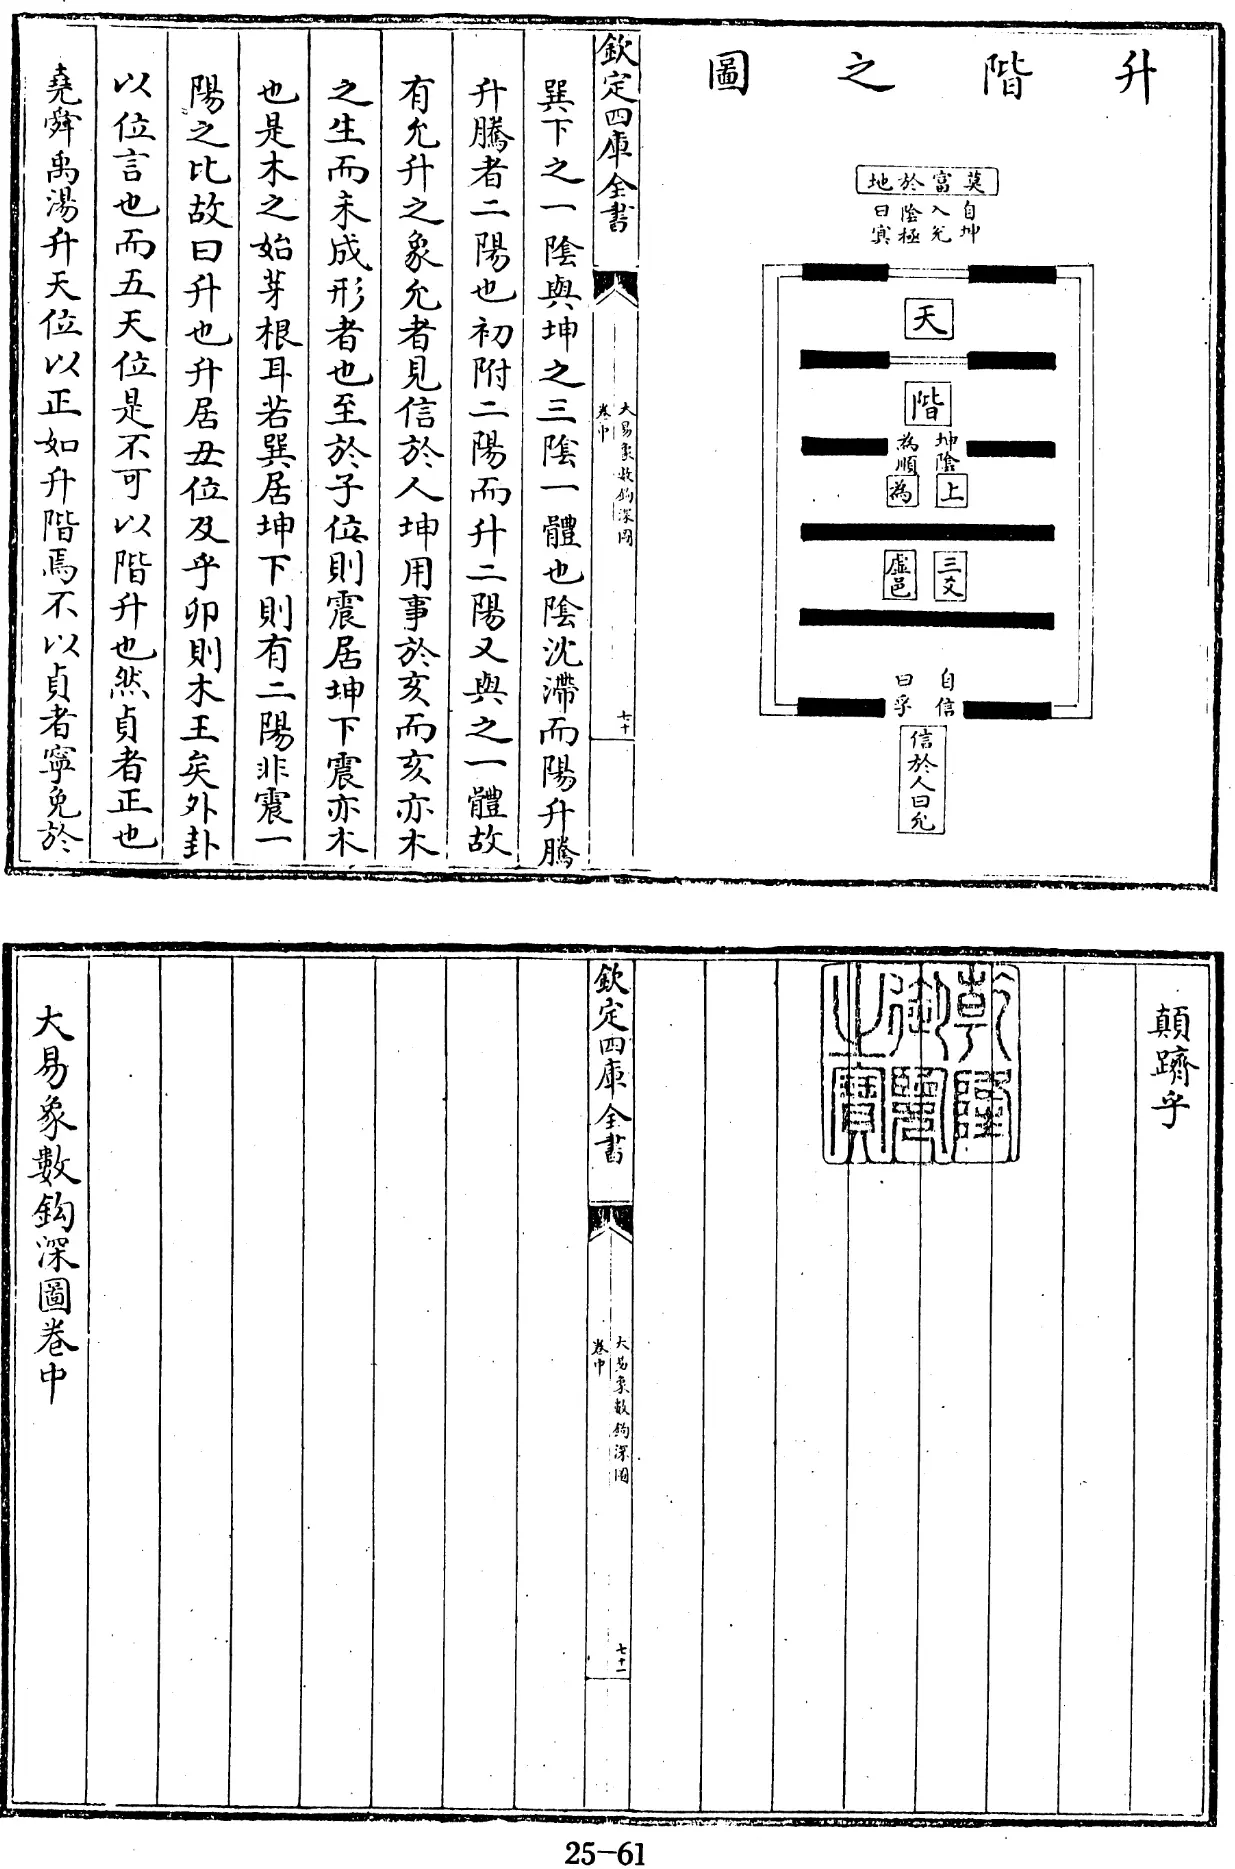 升階之圖
莫富於地
自坤
入兊
陰極
曰㝠
天
階
坤陰
為順
上
為
三爻
虛邑
自信
曰孚
信於人曰允
欽定四庫全書
大易象數鈎深圖
卷中
七十
巽下之一陰與坤之三陰一體也陰沈滯而陽升騰
升騰者二陽也初附二陽而升二陽又與之一體故
有允升之象允者見信於人坤用事於亥而亥亦木
之生而未成形者也至於子位則震居坤下震亦木
也是木之始芽根耳若巽居坤下則有二陽非震一
陽之比故曰升也升居丑位及乎卯則木王矣外卦
以位言也而五天位是不可以階升也然貞者正也
堯舜禹湯升天位以正如升階焉不以貞者寧免於
顛躋乎
乾隆御覽之寶
欽定四庫全書
大易象數鈎深圖
卷中
七十一
大易象數鈎深圖卷中
25-61